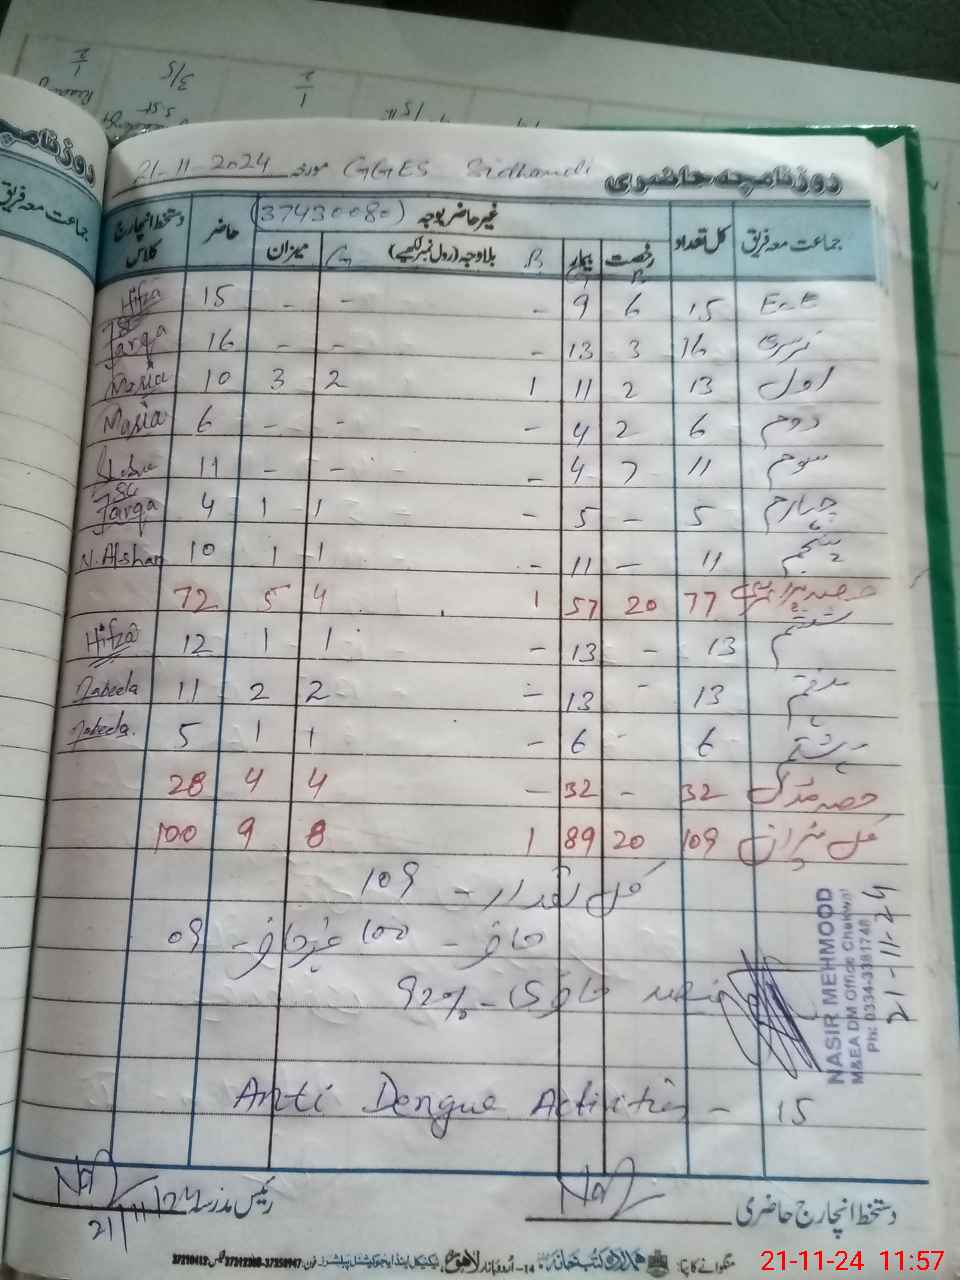 روزنامچہ حاضری GGES Sidhandi مورخہ 21-11-2024
جماعت معہ فریق کل تعداد غیر حاضر بوجہ (37430080) حاضر دستخط انچارج کلاس
رخصت B بیمار G B بلاوجہ (رول نمبر لکھیے) G میزان
E.C.E 15 6 9 - - - 15 Hifza
نرسری 16 3 13 - - - 16 Farqa
اول 13 2 11 1 2 3 10 Maria
دوم 6 2 4 - - - 6 Maria
سوم 11 7 4 - - - 11
چہارم 5 - 5 - 1 1 4 Farqa
پنجم 11 - 11 - 1 1 10 N. Afshan
حصہ پرائمری 77 20 57 1 4 5 72
ششم 13 - 13 - 1 1 12 Hifza
ہفتم 13 - 13 - 2 2 11 Nabeela
ہشتم 6 - 6 - 1 1 5 Nabeela.
حصہ مڈل 32 - 32 - 4 4 28
کل میزان 109 20 89 1 8 9 100
کل تعداد - 109
حاضر - 100 غیر حاضر - 09
فیصد حاضری - 92%
NASIR MEHMOOD
M&EA DM Office Chakwal
Ph: 0334-3381748
21-11-24
Anti Dengue Activities - 15
دستخط انچارج حاضری
رئیس مدرسہ
21/11/24
منگوانے کا پتا: ہمالہ کتب خانہ 14-اردو بازار لاہور
21-11-24 11:57